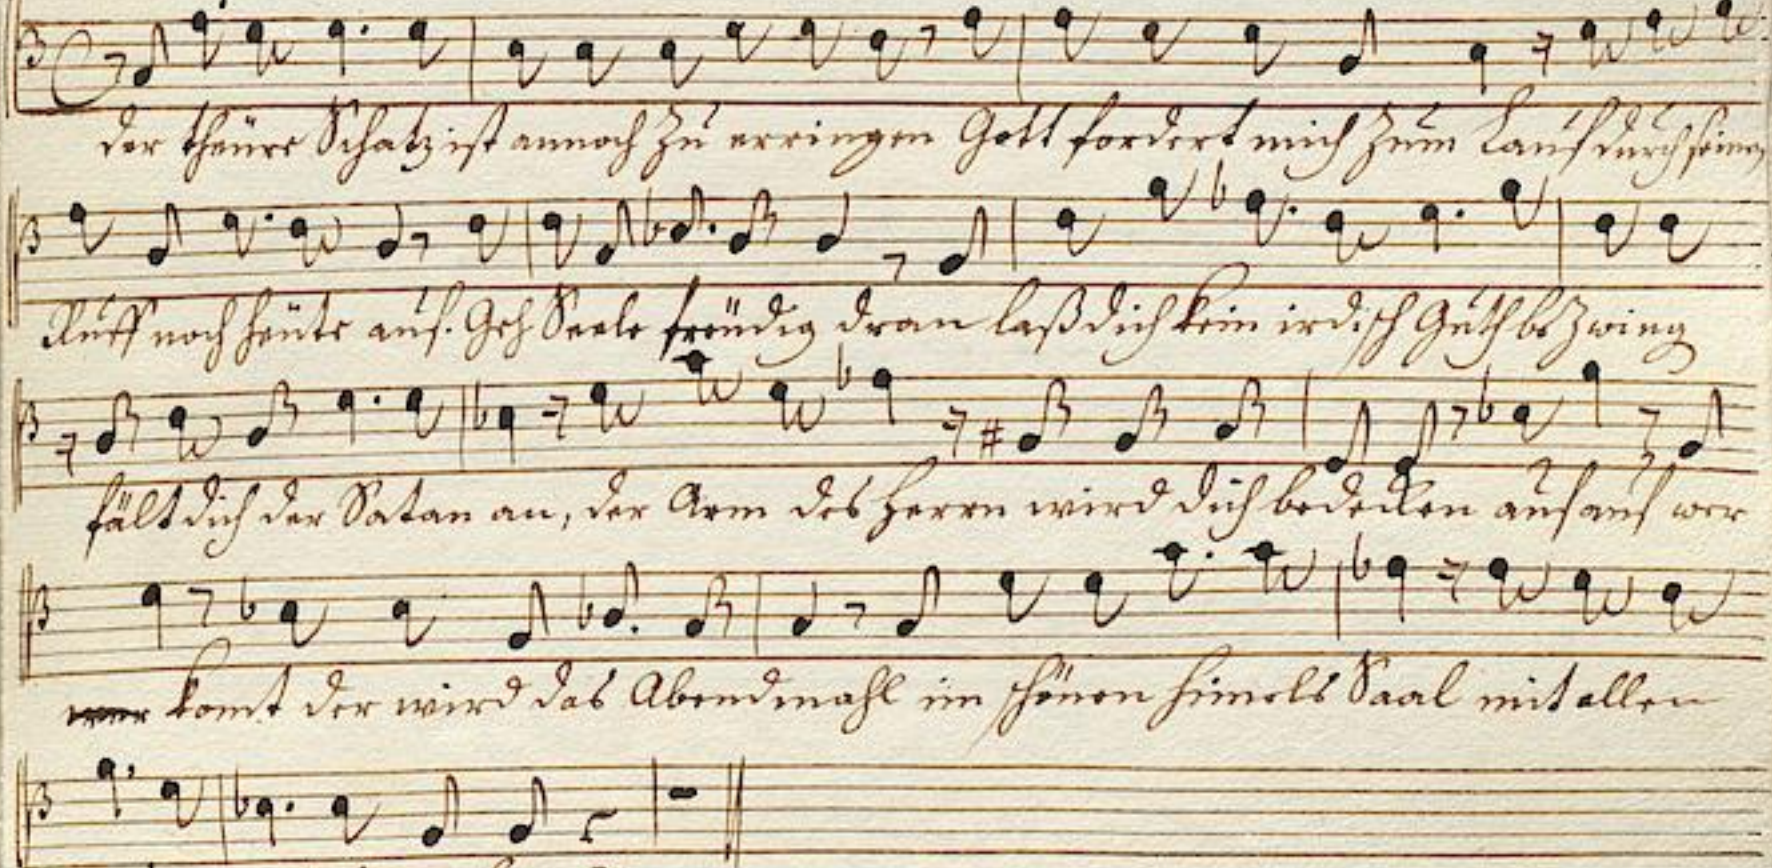 der theüre Schatz ist annoch zu erringen Gott fordert mich zum Lauf durch seinen
Ruff noch heüte auf. Geh Seele freüdig dran laß dich kein irdisch Guth bezwing
fält dich der Satan an, der Arm des Herrn wird dich bedecken auf auf wer
komt der wird das Abendmahl im schönen Himels Saal mit allen